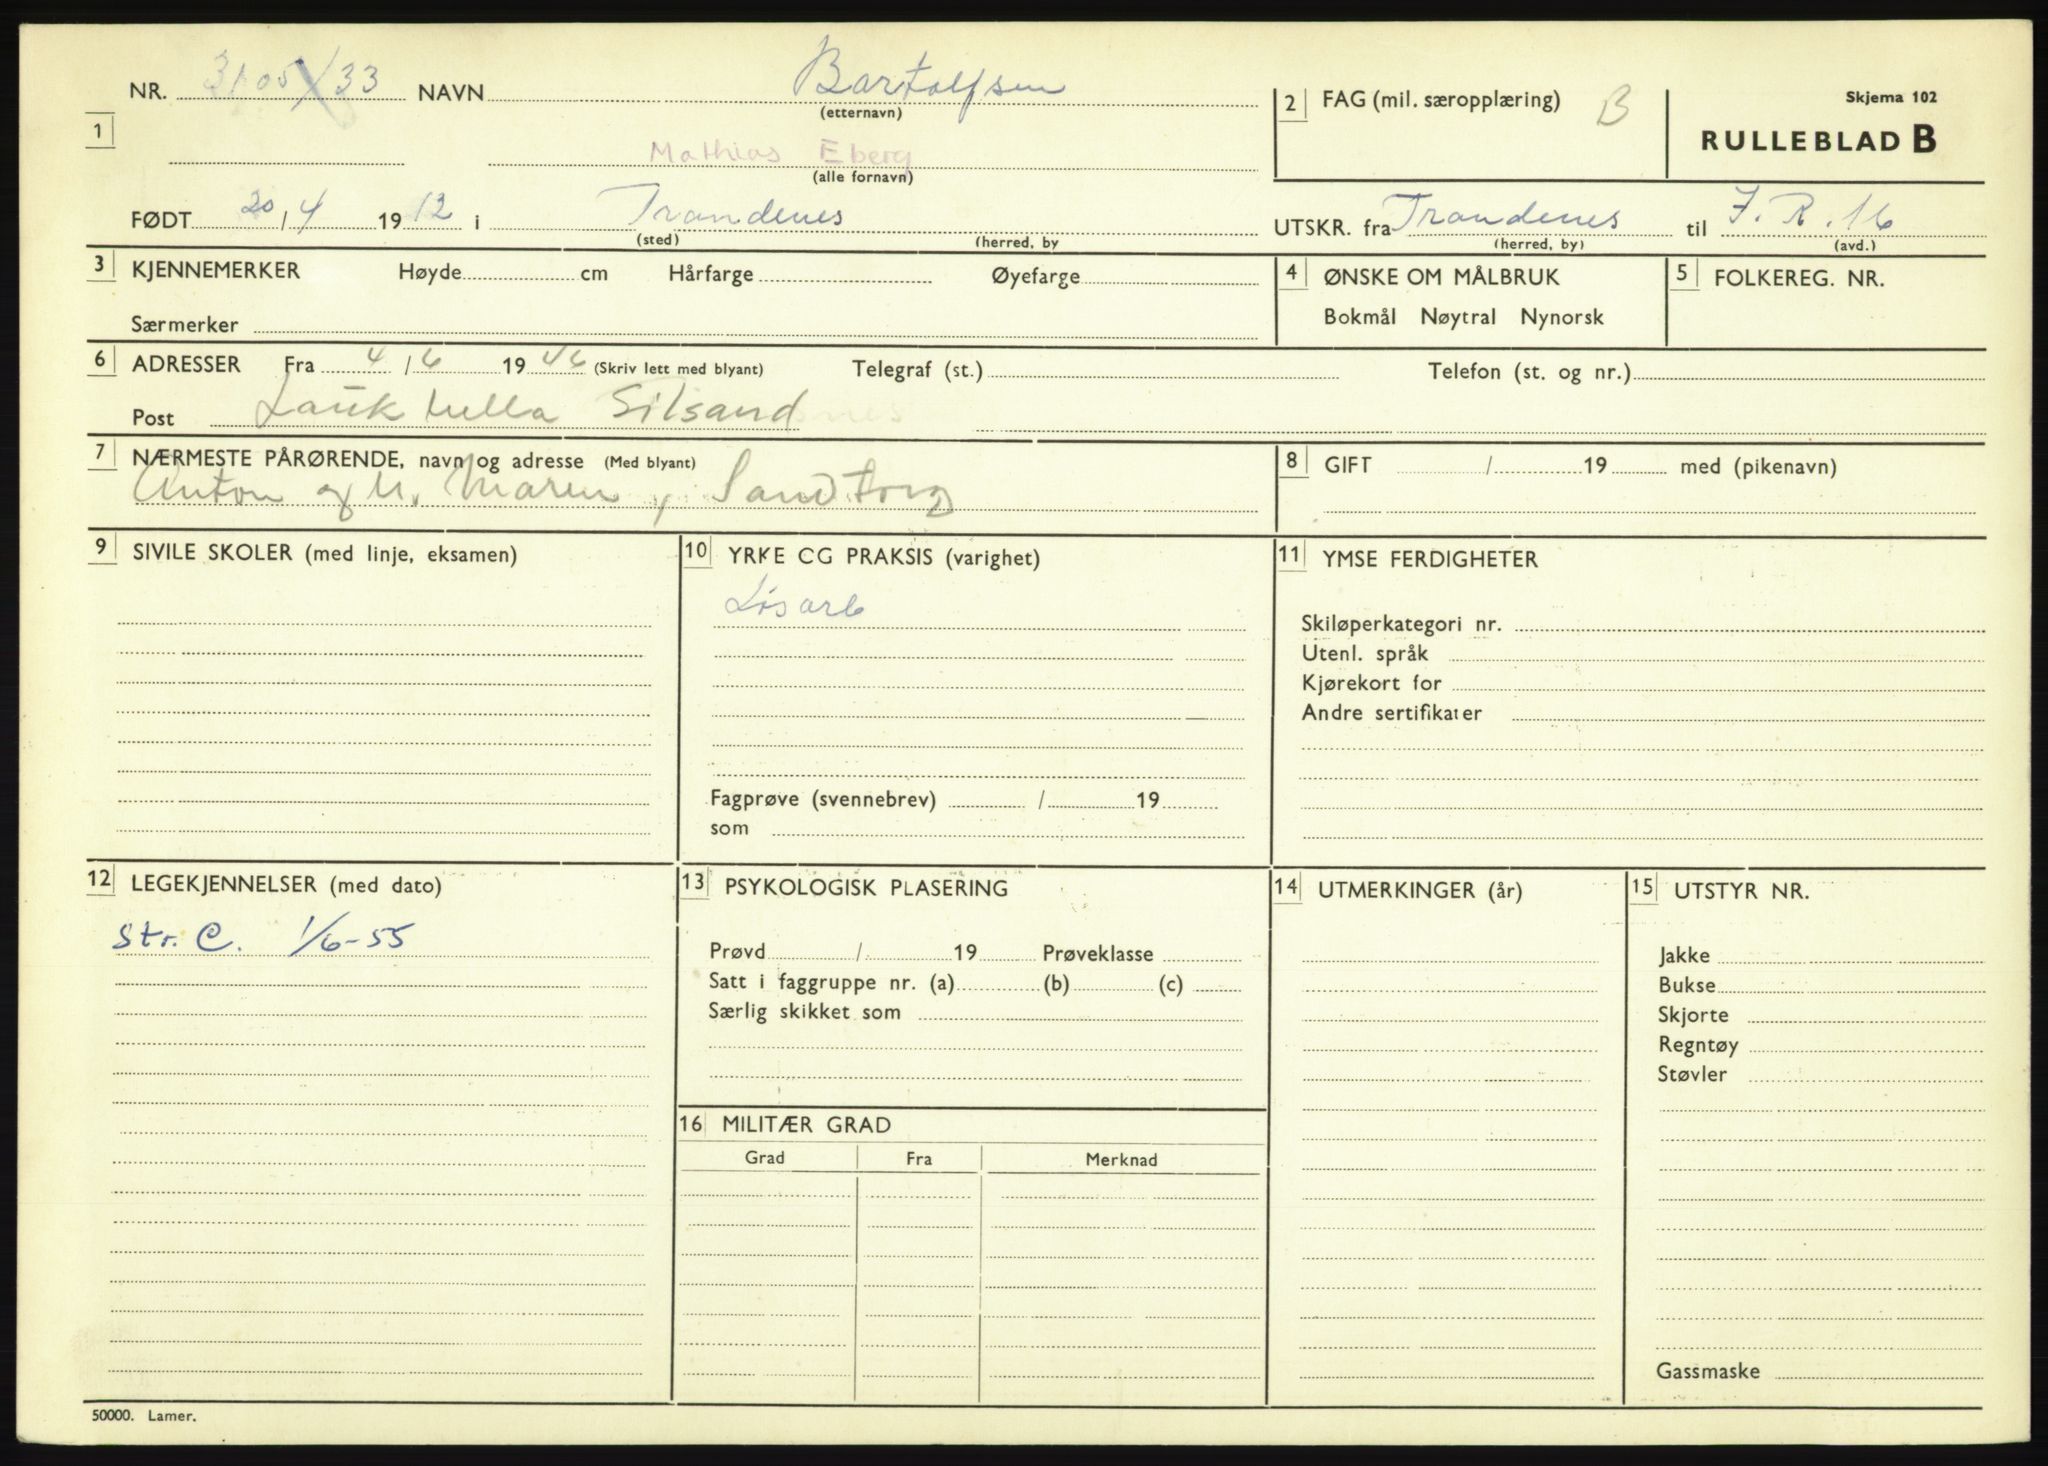 NR. 3105/33 NAVN Bartolfsen
(etternavn)
1
Mathias Eberg
(alle fornavn)
2 FAG (mil. særopplæring) B
Skjema 102
RULLEBLAD B
FØDT 20/4 1912 i Trondenes
(sted) (herred, by
UTSKR. fra Trondenes til I.R. 16
(herred, by) (avd.)
3 KJENNEMERKER Høyde cm Hårfarge Øyefarge
Særmerker
4 ØNSKE OM MÅLBRUK
Bokmål Nøytral Nynorsk
5 FOLKEREG. NR.
6 ADRESSER Fra 4/6 1946 (Skriv lett med blyant) Telegraf (st.) Telefon (st. og nr.)
Post Laukhella Silsand
7 NÆRMESTE PÅRØRENDE, navn og adresse (Med blyant)
Anton og h. Maren, Sandtorg
8 GIFT / 19 med (pikenavn)
9 SIVILE SKOLER (med linje, eksamen)
10 YRKE CG PRAKSIS (varighet)
Løsarb
Fagprøve (svennebrev) / 19
som
11 YMSE FERDIGHETER
Skiløperkategori nr.
Utenl. språk
Kjørekort for
Andre sertifikater
12 LEGEKJENNELSER (med dato)
Str. C. 1/6-55
13 PSYKOLOGISK PLASERING
Prøvd / 19 Prøveklasse
Satt i faggruppe nr. (a) (b) (c)
Særlig skikket som
14 UTMERKINGER (år)
15 UTSTYR NR.
Jakke
Bukse
Skjorte
Regntøy
Støvler
Gassmaske
16 MILITÆR GRAD
Grad Fra Merknad
50000. Lamer.